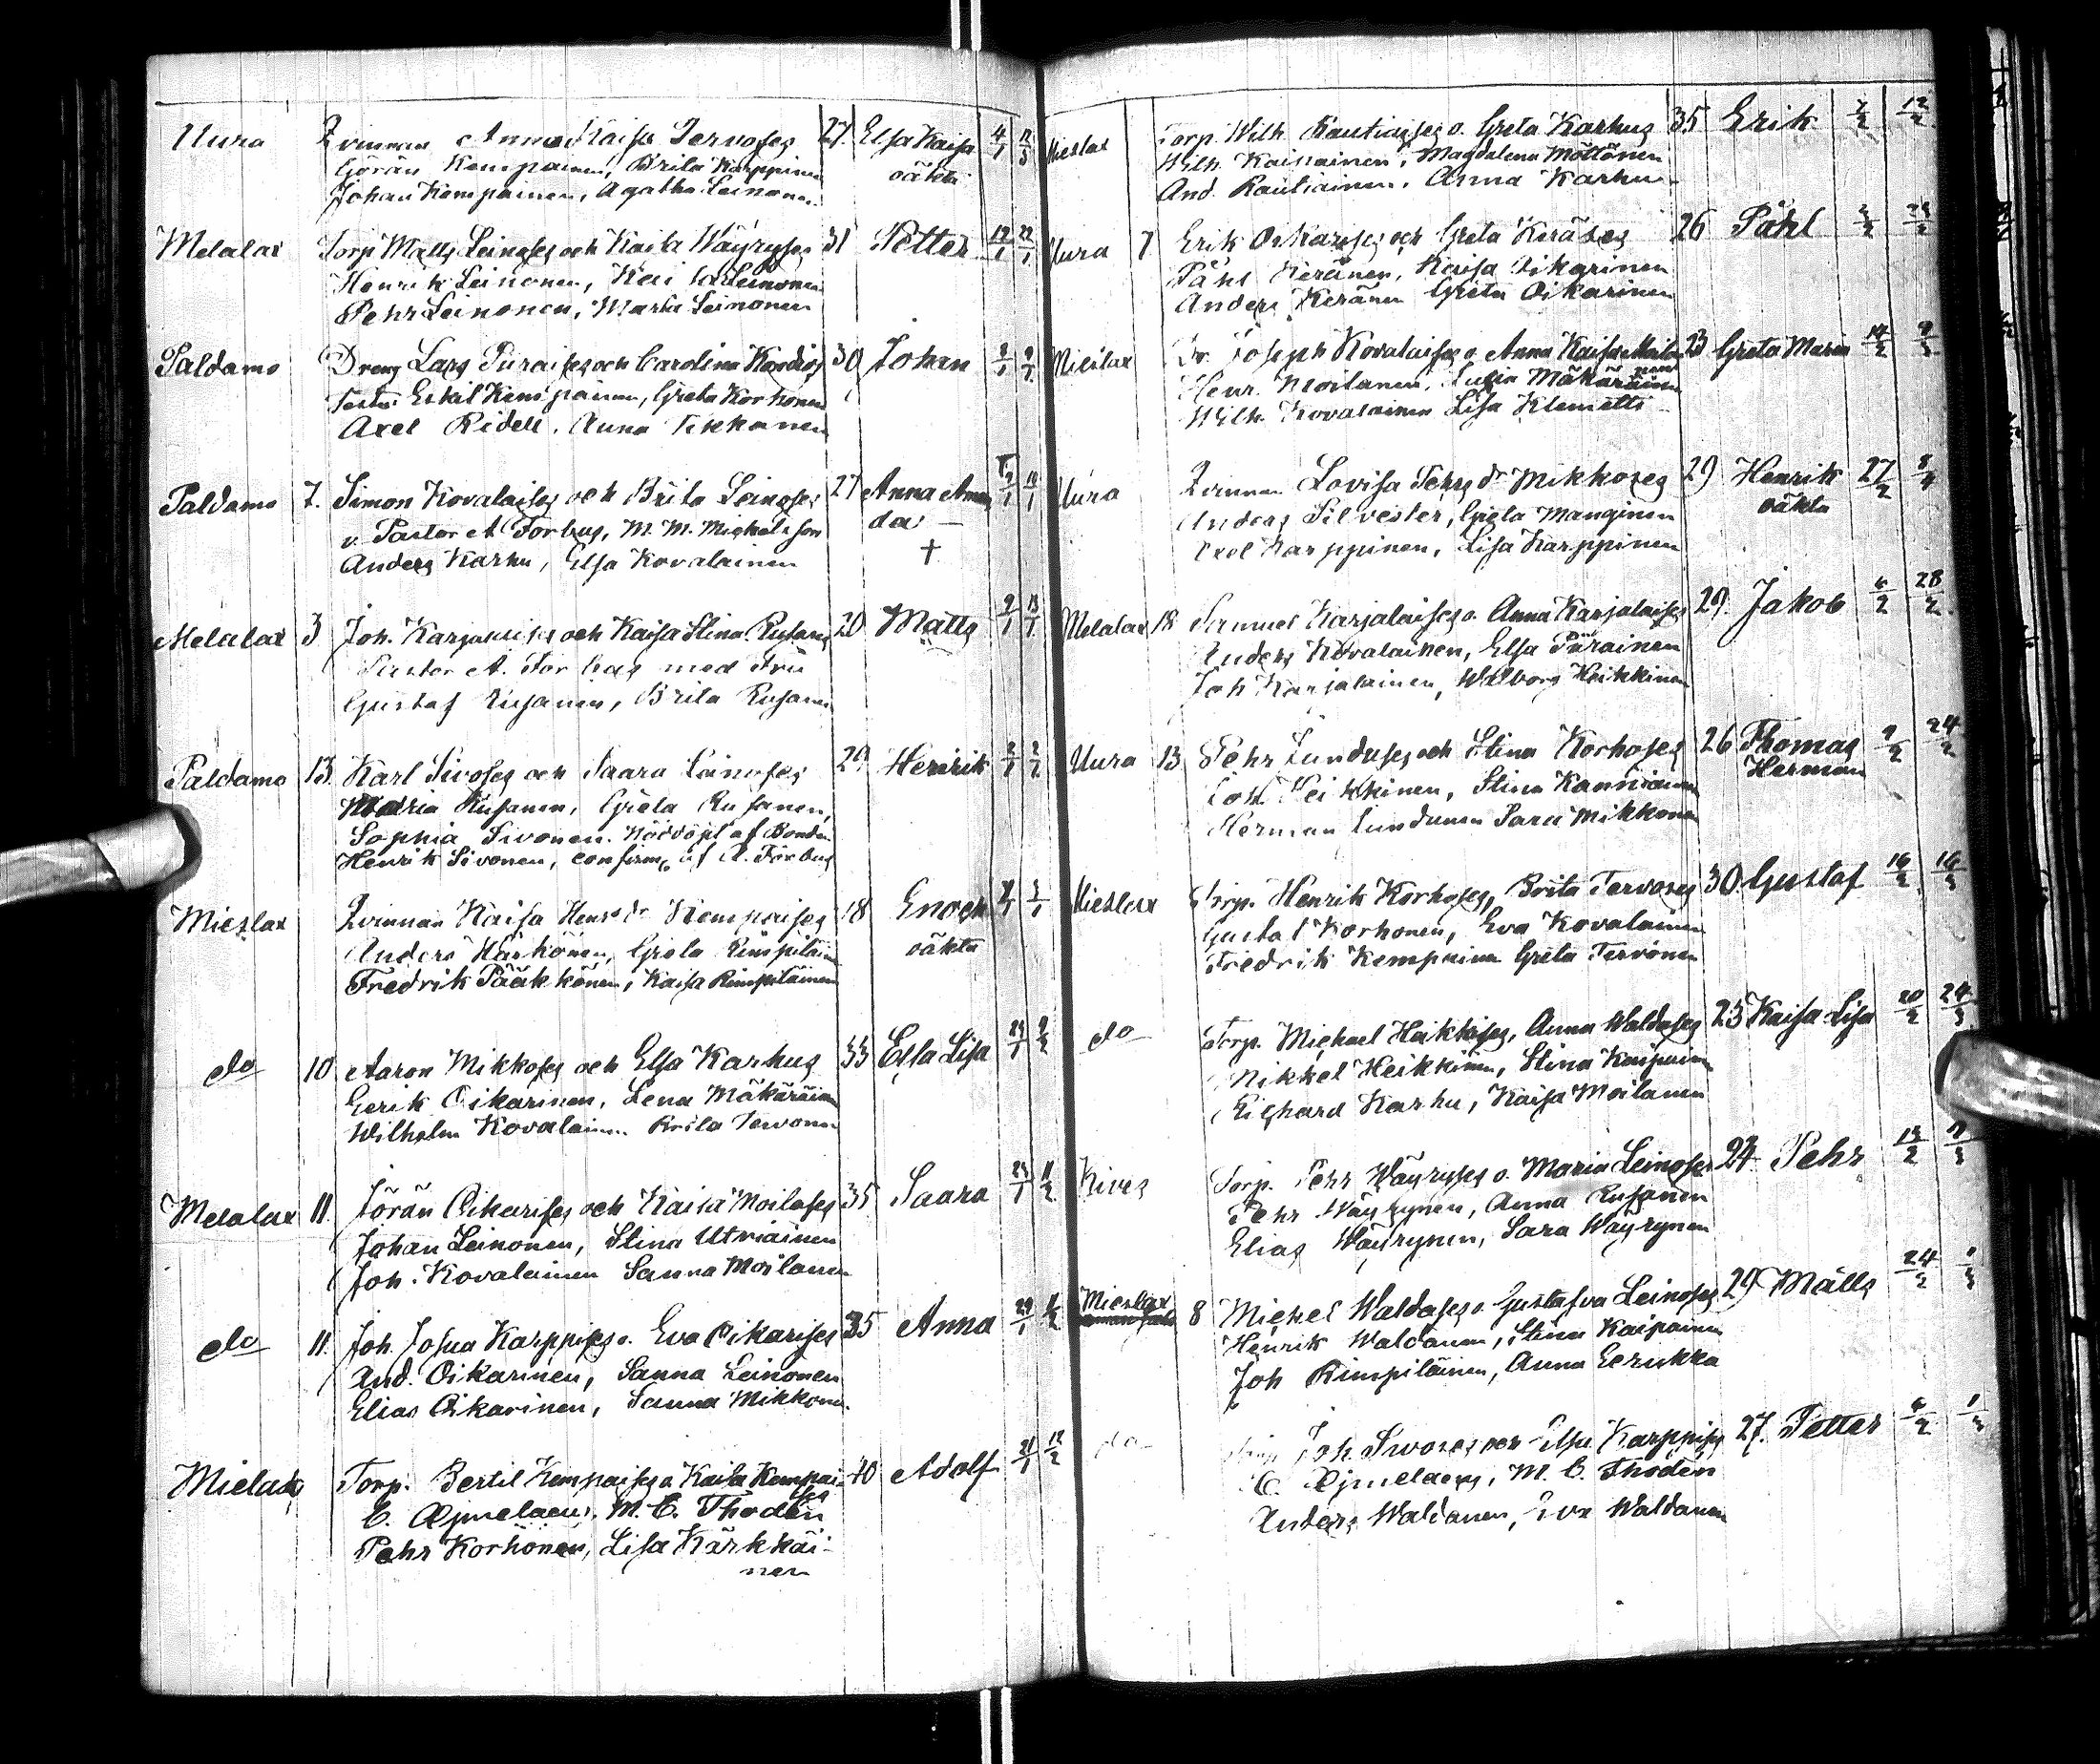 Uura Qvinnan Anna Kaisa Tervoses 27. Elsa Kaisa 4/1
Görän Kempainen, Brita Karppinen oäkta
Johan Kempainen, Agatha Leinonen
Melalax Torp. Matts Leinoses och Kaisa Wäyryses 31 Petter 19/1 22/1
Henrik Leinonen, Leinonen
Pehr Leinonen, Maria Leinonen
Paldamo Dreng Lars Piiraises och Carolina 30 Johan
Test: Eskil Kempainen, Greta Korhonen
Axel Ridell, Anna Tikkanen
Paldamo 7. Simon Kovalaises och Brita Leinoses 27 Anna Aman
v. Pastor A Forbus, M. M. Michelsson da —
Anders Karhu, Elsa Kovalainen †
Melalax 3 Joh. Karjalaises och Kaisa Stina Rusanes 20 Matts 9/1 13/1
Pastor A. Forbus med Fru
Gustaf Rusanen, Brita Rusanen
Paldamo 13. Karl Sivoses och Saara Leinoses 29 Henrik
Maria Rusanen, Greta Rusanen,
Sophia Sivonen. Nöddöpt af Bonden
Henrik Sivonen, confirm. af A. Forbus
Mieslax Qvinnan Kaisa Henr. dr Kempaises 18 Enoch
Anders Härkönen, Greta Rimpiläinen oäkta
Fredrik Pääkkönen, Kaisa Rimpiläinen
do 10 Aaron Mikkoses och Elsa Karhus 33 Elsa Lisa
Eerik Oikarinen, Lena Mäkäräinen
Wilhelm Kovalainen Brita Tervonen
Melalax 11. Jörän Oikarises och Kaisa Moilases 35 Saara
Johan Leinonen, Stina Utriainen
Joh. Kovalainen Sanna Moilanen
do 11. Joh. Josua Karppises o. Eva Oikarises 35 Anna
And. Oikarinen, Sanna Leinonen
Elias Oikarinen, Sanna Mikkonen.
Torp. Bertil Kempaises o Kaisa Kempai- 40 Adolf 21/1 12/2
ses
C. Ajmelaeus, M. C. Thodén
Pehr Korhonen, Lisa Kärkkäi-
nen
Mieslax Torp. Wilh. Rautiaises o. Greta Karhus 35 Erik 7/2 12/2
Wilh. Kainainen, Magdalena Möttönen
And. Rautiainen, Anna Karhu
Uura 7 Erik Oikarises och Greta Keräses 26 Påhl
Påhl Keränen, Kaisa Oikarinen
Anders Keränen Greta Oikarinen
Mieslax Joseph Kovalaises o. Anna Kaisa 23 Greta Maria
Henr. Moilanen, Mäkäräinen
Wilh. Kovalainen Lisa Klemetti
Uura Qvinnan Lovisa Pehrs dr Mikkoses 29 Henrik 27/2
Anders Silvester, Greta Manginen oäkta
Axel Karppinen, Lisa Karppinen
Melalax 18 Samuel Karjalaises o. Anna Karjalaises 29. Jakob 6/2 28/2.
Anders Kovalainen, Elsa Piirainen
Joh Karjalainen, Walborg Heikkinen
Uura 13 Pehr Lunduses och Stina Korhoses 26 Thomas 9/2 24/2
Joh. Heikkinen, Stina Kanniainen Herman
Herman Lundunen Sara Mikkonen
Mieslax Torp. Henrik Korhoses, Brita Tervoses 30 Gustaf 16/2 16/3
Gustaf Korhonen, Eva Kovalainen
Fredrik Kempainen Greta Tervonen
do Torp. Michael Heikkises, Anna Waldases 23 Kaisa Lisa 20/2 24/3
Mikkel Heikkinen, Stina Kaipainen
Richard Karhu, Kaisa Moilanen
Kives Torp. Pehr Wäyryses o. Maria Leinoses 24 Pehr
Pehr Wäyrynen, Anna Rusanen
Elias Wäyrynen, Sara Wäyrynen
Mieslax 8 Michel Waldases o. Gustafva Leinoses 29 Matts
Henrik Waldanen, Stina Kaipainen
Joh Rimpiläinen, Anna Eerukka
do Joh. Sivoses och Elsa Karppises 27. Petter
C. Ajmelaeus, M. C. Thodén
Anders Waldanen, Eva Waldanen